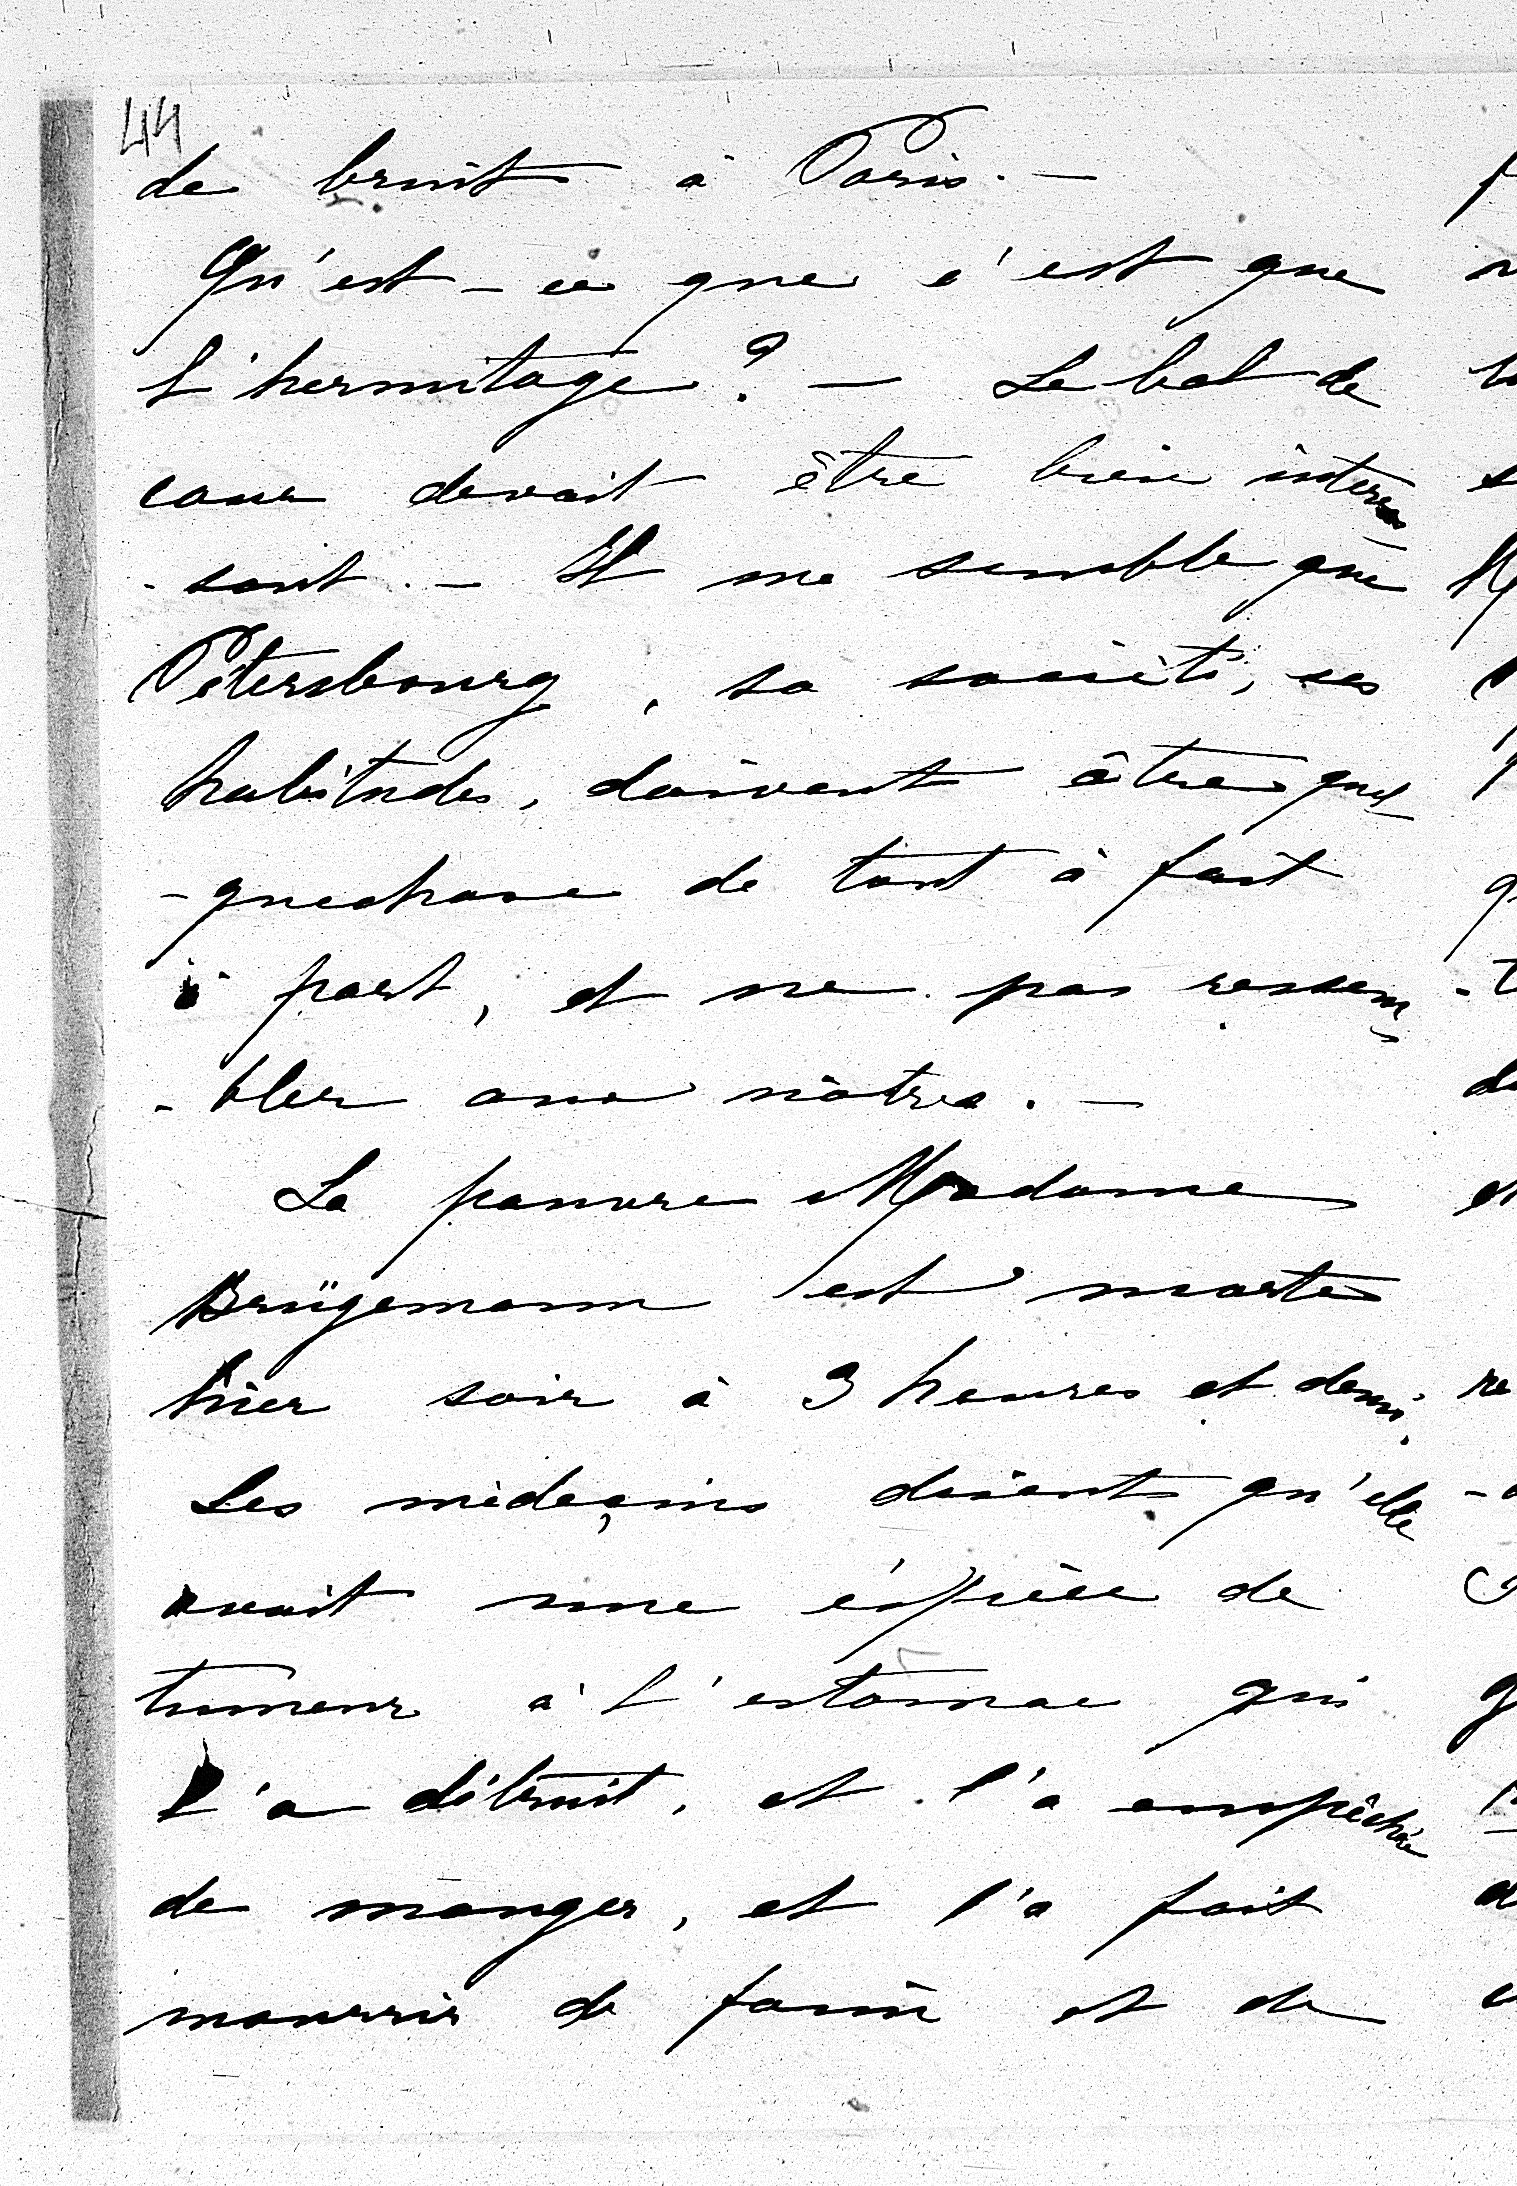 44
de bruit à Paris. —
Qu'est-ce que c'est que
l'hermitage ? — Le bal de
cour devait être bien intéres
-sant. — Il me semble que
Pétersbourg, sa société, ses
habitudes, doivent être quel
-quechose de tout à fait
à part, et ne pas ressem
-bler aux nôtres. —
La pauvre Madame
Brügemann est morte
hier soir à 3 heures et demi.
Les médeçins disent qu'elle
avait une éspèce de
tumeur à l'estomac qui
l'a détruit, et l'a empêchée
de manger, et l'a fait
mourrir de faim et de